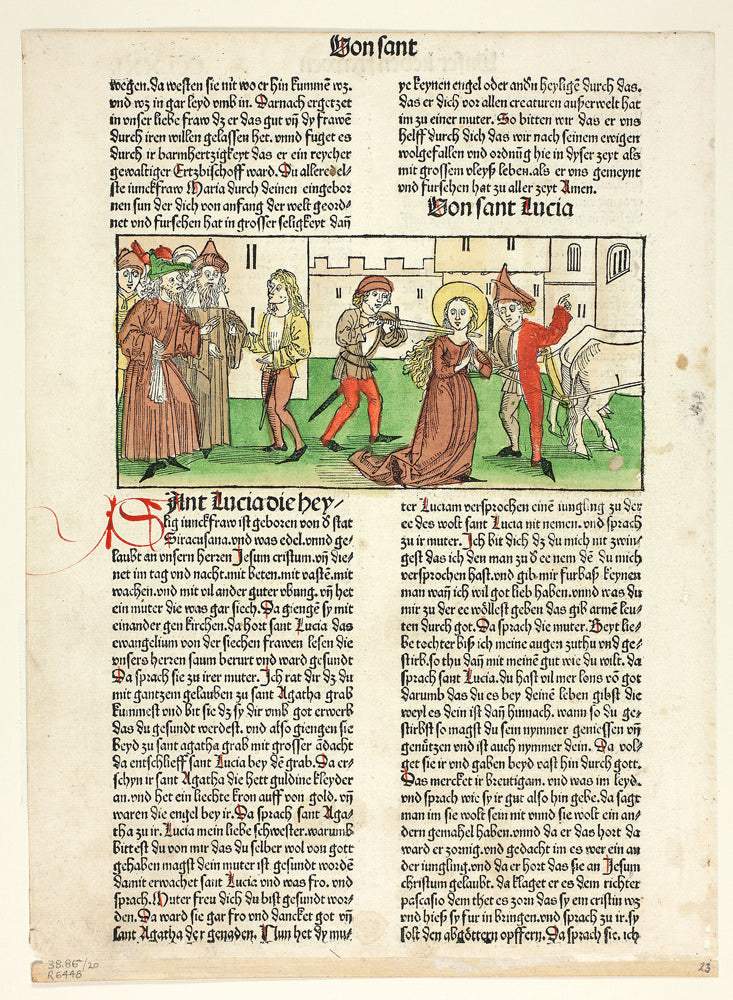 Von sant
wegen. da westen sie nit wo er hin kummen wz.
vnd wz in gar leyd vmb in. Darnach ergetzet
in vnser liebe fraw dz er das gut vñ dy frawē
durch iren willen gelassen het. vnnd fuget es
durch ir barmhertzigkeyt das er ein reycher
gewaltiger Ertzbischoff ward. Du alleredel-
ste iunckfraw Maria durch deinen eingebor
nen sun der dich von anfang der welt geord-
net vnd fursehen hat in grosser seligkeyt dañ
ye keynen engel oder andñ heyligē durch das.
das er dich vor allen creaturen außerwelt hat
im zu einer muter. So bitten wir das er vns
helff durch dich das wir nach seinem ewigen
wolgefallen vnd ordnūg hie in dyser zeyt als
mit grossem vleyß leben. als er vns gemeynt
vnd fursehen hat zu aller zeyt Amen.
Von sant Lucia
SAnt Lucia die hey/
lig iunckfraw ist geboren von d̄ stat
Siracusana. vnd was edel. vnnd ge-
laubt an vnsern herren Jesum cristum. vñ die-
net im tag vnd nacht. mit beten. mit vastē. mit
wachen. vnd mit vil ander guter vbung. vñ het
ein muter die was gar siech. Da giengē sy mit
einander gen kirchen. da hort sant Lucia das
ewangelium von der siechen frawen lesen die
vnsers herren saum berurt vnd ward gesundt
Da sprach sie zu irer muter. Jch rat dir dz du
mit gantzem gelauben zu sant Agatha grab
kummest vnd bit sie dz sy dir vmb got erwerb
das du gesundt werdest. vnd also giengen sie
beyd zu sant agatha grab mit grosser ādacht
da entschlieff sant Lucia bey dē grab. Da er-
schyn ir sant Agatha die hett guldine kleyder
an. vnd het ein liechte kron auff von gold. vñ
waren die engel bey ir. Da sprach sant Aga-
tha zu ir. Lucia mein liebe schwester. warumb
bittest du von mir das du selber wol von gott
gehaben magst dein muter ist gesundt wordē
damit erwachet sant Lucia vnd was fro. vnd
sprach. Muter freu dich du bist gesundt wor-
den. Da ward sie gar fro vnd dancket got vñ
sant Agatha der genaden. Nun het dy mu-
ter Luciam versprochen einē iungling zu der
ee des wolt sant Lucia nit nemen. vnd sprach
zu ir muter. Jch bit dich dz du mich nit zwin-
gest das ich den man zu d̄ ee nem dē du mich
versprochen hast. vnd gib mir furbaß keynen
man wañ ich wil got lieb haben. vnnd was du
mir zu der ee wöllest geben das gib armē leu-
ten durch got. Da sprach die muter. Beyt lie-
be tochter biß ich meine augen zuthu vnd ge-
stirb. so thu dañ mit meinē gut wie du wilt. da
sprach sant Lucia. du hast vil mer lons vō got
darumb das du es bey deinē leben gibst die
weyl es dein ist dañ hinnach. wann so du ge-
stirbst so magst du sein nymmer geniessen vñ
genützen vnd ist auch nymmer dein. Da vol-
get sie ir vnd gaben beyd vast hin durch gott.
Das mercket ir breutigam. vnd was im leyd.
vnd sprach wie sy ir gut also hin gebe. da sagt
man im sie wolt sein nit vnnd sie wolt ein an-
dern gemahel haben. vnnd da er das hort da
ward er zornig. vnd gedacht im es wer ein an
der iungling. vnd da er hort das sie an Jesum
christum gelaubt. da klaget er es dem richter
pascasio dem thet es zorn das sy ein cristin wz
vnd hieß sy fur in bringen. vnd sprach zu ir. sy
solt den abgöttern opffern. Da sprach sie. ich
38.86/20
R6448
23